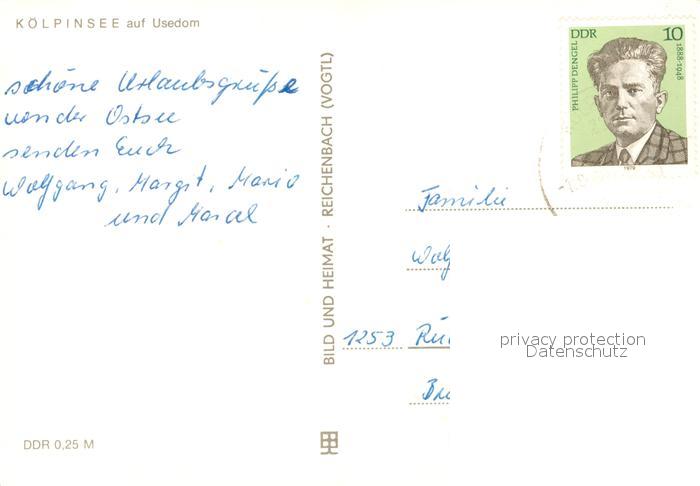 KÖLPINSEE auf Usedom
schöne Urlaubsgrüße
von der Ostsee
senden Euch
Wolfgang, Margit, Mario
und Marcel
DDR 0,25 M
BILD UND HEIMAT · REICHENBACH (VOGTL)
DDR 10
PHILIPP DENGEL
1888-1948
1979
Familie
Wolf
1253 Rü
privacy protection
Datenschutz